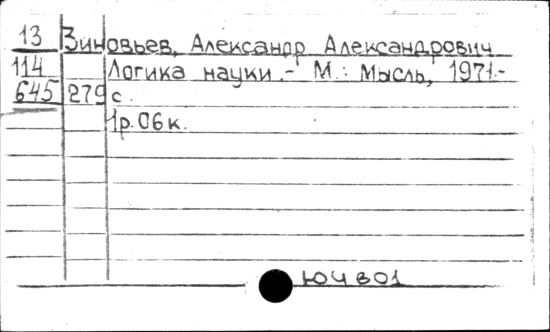 13 Зиновьев, Александр Александрович
114 Логика науки.- М.: Мысль, 1971.-
645 279 с.
1р.06к.
Ю4в01